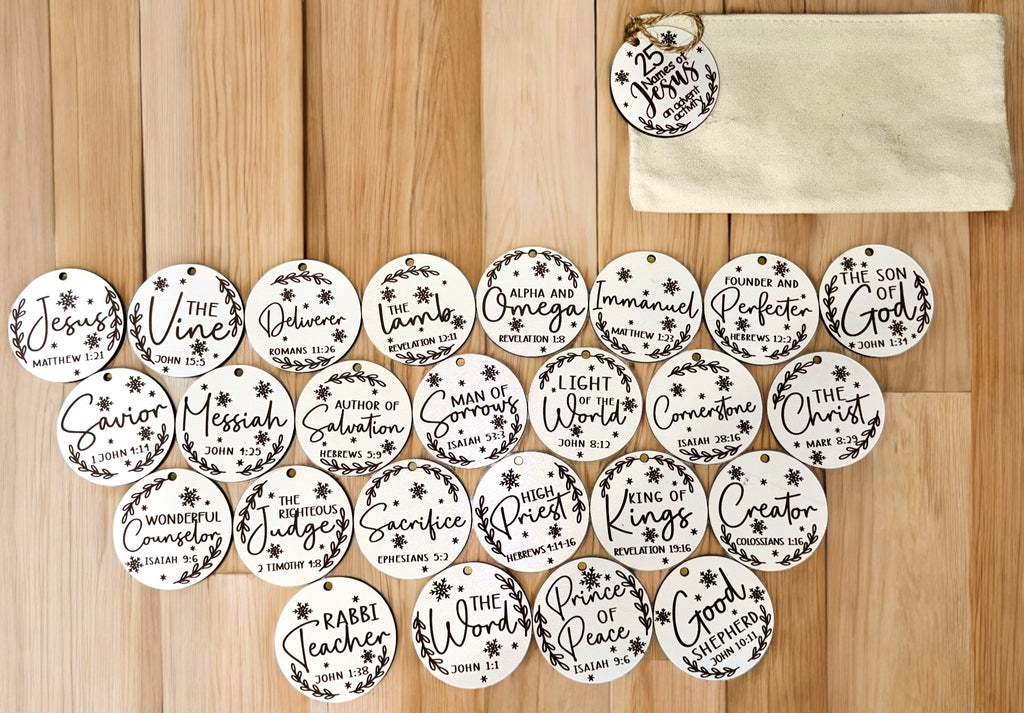 25
Names of
Jesus
an advent
activity
Jesus
MATTHEW 1:21
THE
Vine
JOHN 15:5
Deliverer
ROMANS 11:26
THE
Lamb
REVELATION 12:11
ALPHA AND
Omega
REVELATION 1:8
Immanuel
MATTHEW 1:23
FOUNDER AND
Perfecter
HEBREWS 12:2
THE SON
OF
God
JOHN 1:34
Savior
1 JOHN 4:14
Messiah
JOHN 4:25
AUTHOR OF
Salvation
HEBREWS 5:9
MAN OF
Sorrows
ISAIAH 53:3
LIGHT
OF THE
World
JOHN 8:12
Cornerstone
ISAIAH 28:16
THE
Christ
MARK 8:29
WONDERFUL
Counselor
ISAIAH 9:6
THE
RIGHTEOUS
Judge
2 TIMOTHY 4:8
Sacrifice
EPHESIANS 5:2
HIGH
Priest
HEBREWS 4:14-16
KING OF
Kings
REVELATION 19:16
Creator
COLOSSIANS 1:16
RABBI
Teacher
JOHN 1:38
THE
Word
JOHN 1:1
Prince
OF
Peace
ISAIAH 9:6
Good
SHEPHERD
JOHN 10:11